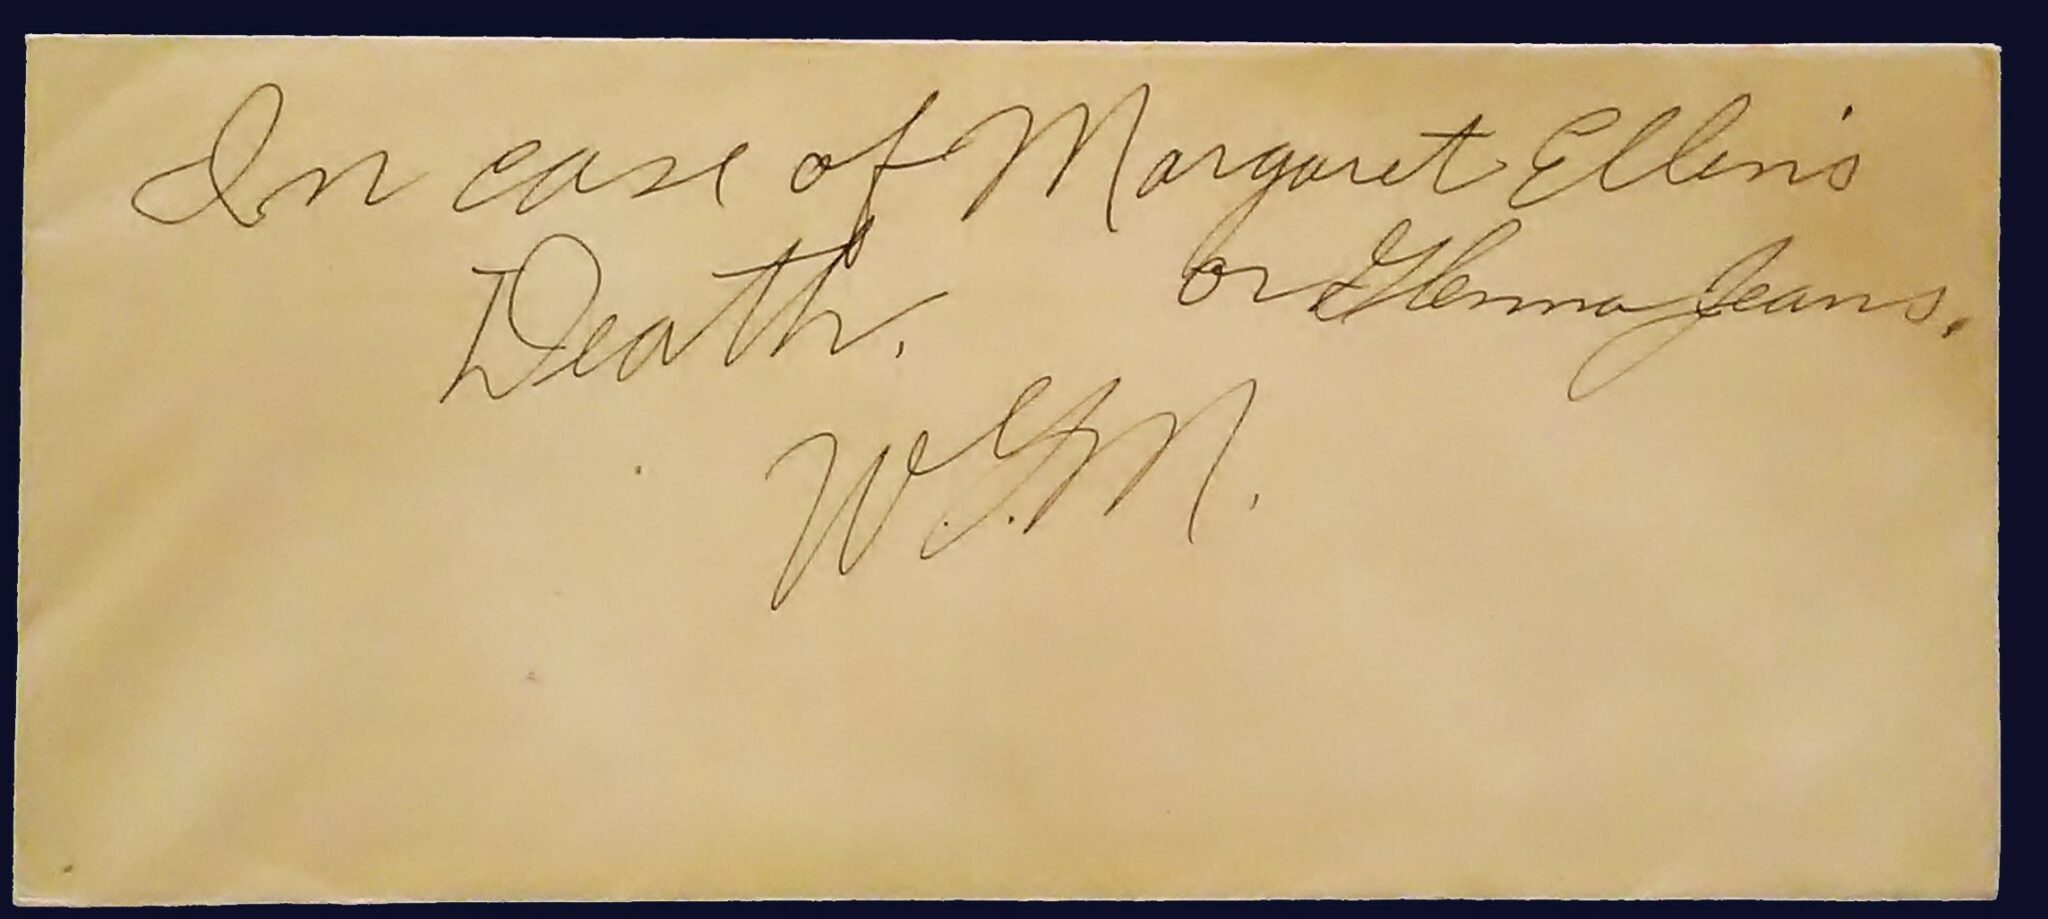 In case of Margaret Ellen's
Death. or Glenna Jeans.
W.G.M.